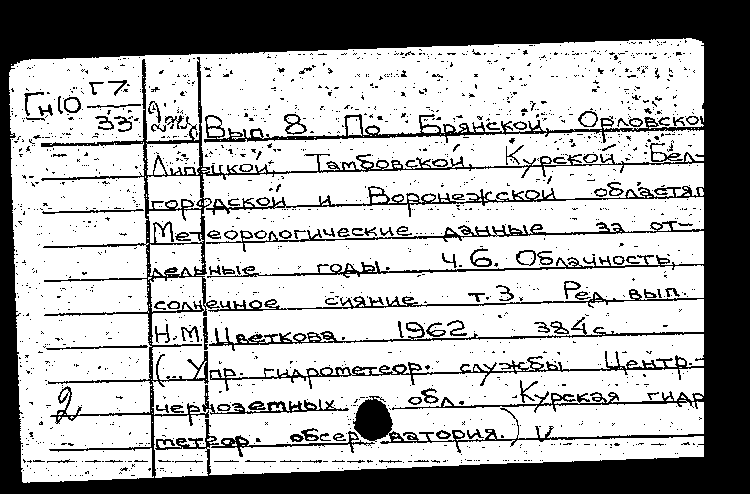 Гн10 Г7
33 2эк,
Вып. 8. По Брянской, Орловской
Липецкой, Тамбовской, Курской, Бел-
городской и Воронежской областям
Метеорологические данные за от-
дельные годы. ч. 6. Облачность,
солнечное сияние. т. 3. Ред. вып.
Н.М. Цветкова. 1962. 384 с.
(...Упр. гидрометеор. службы Центр.-
черноземных обл. Курская гидр
2
метеор. обсерватория.) V